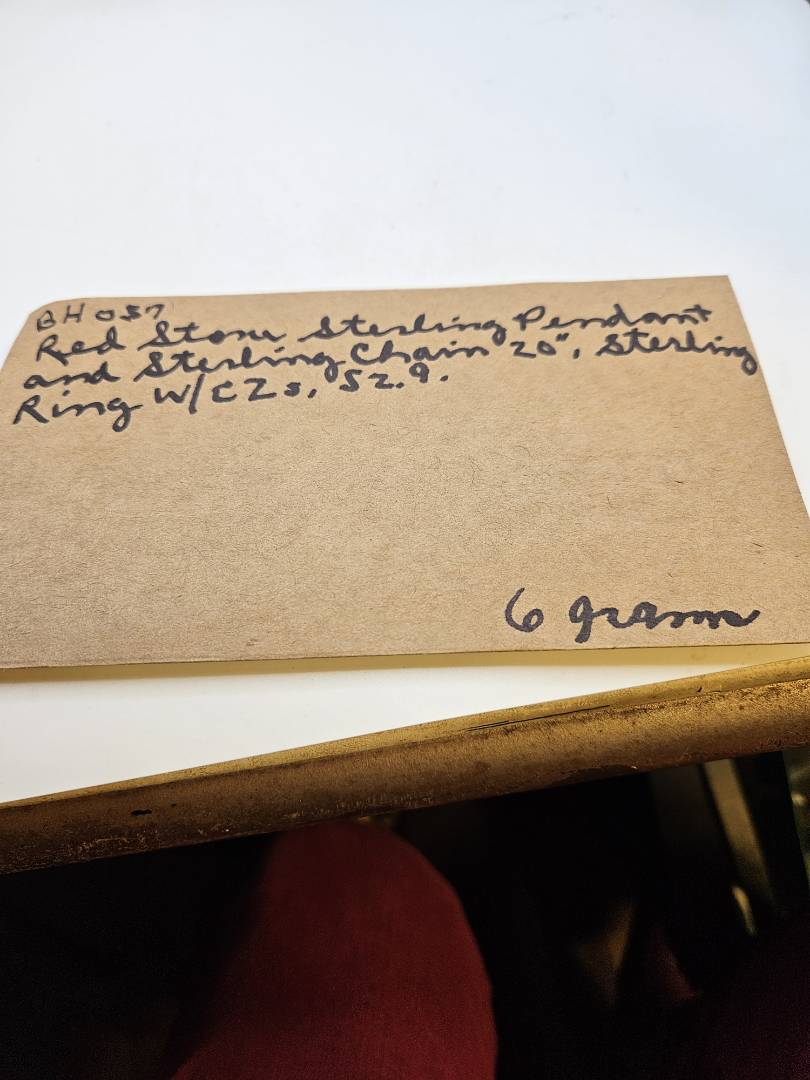 BH 057
Red Stone Sterling Pendant
and Sterling Chain 20", Sterling
Ring W/CZs, SZ.9.
6 grams